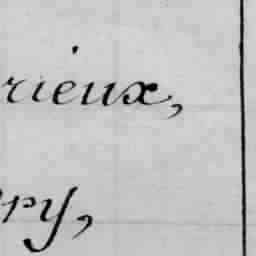 rieux,
ry,